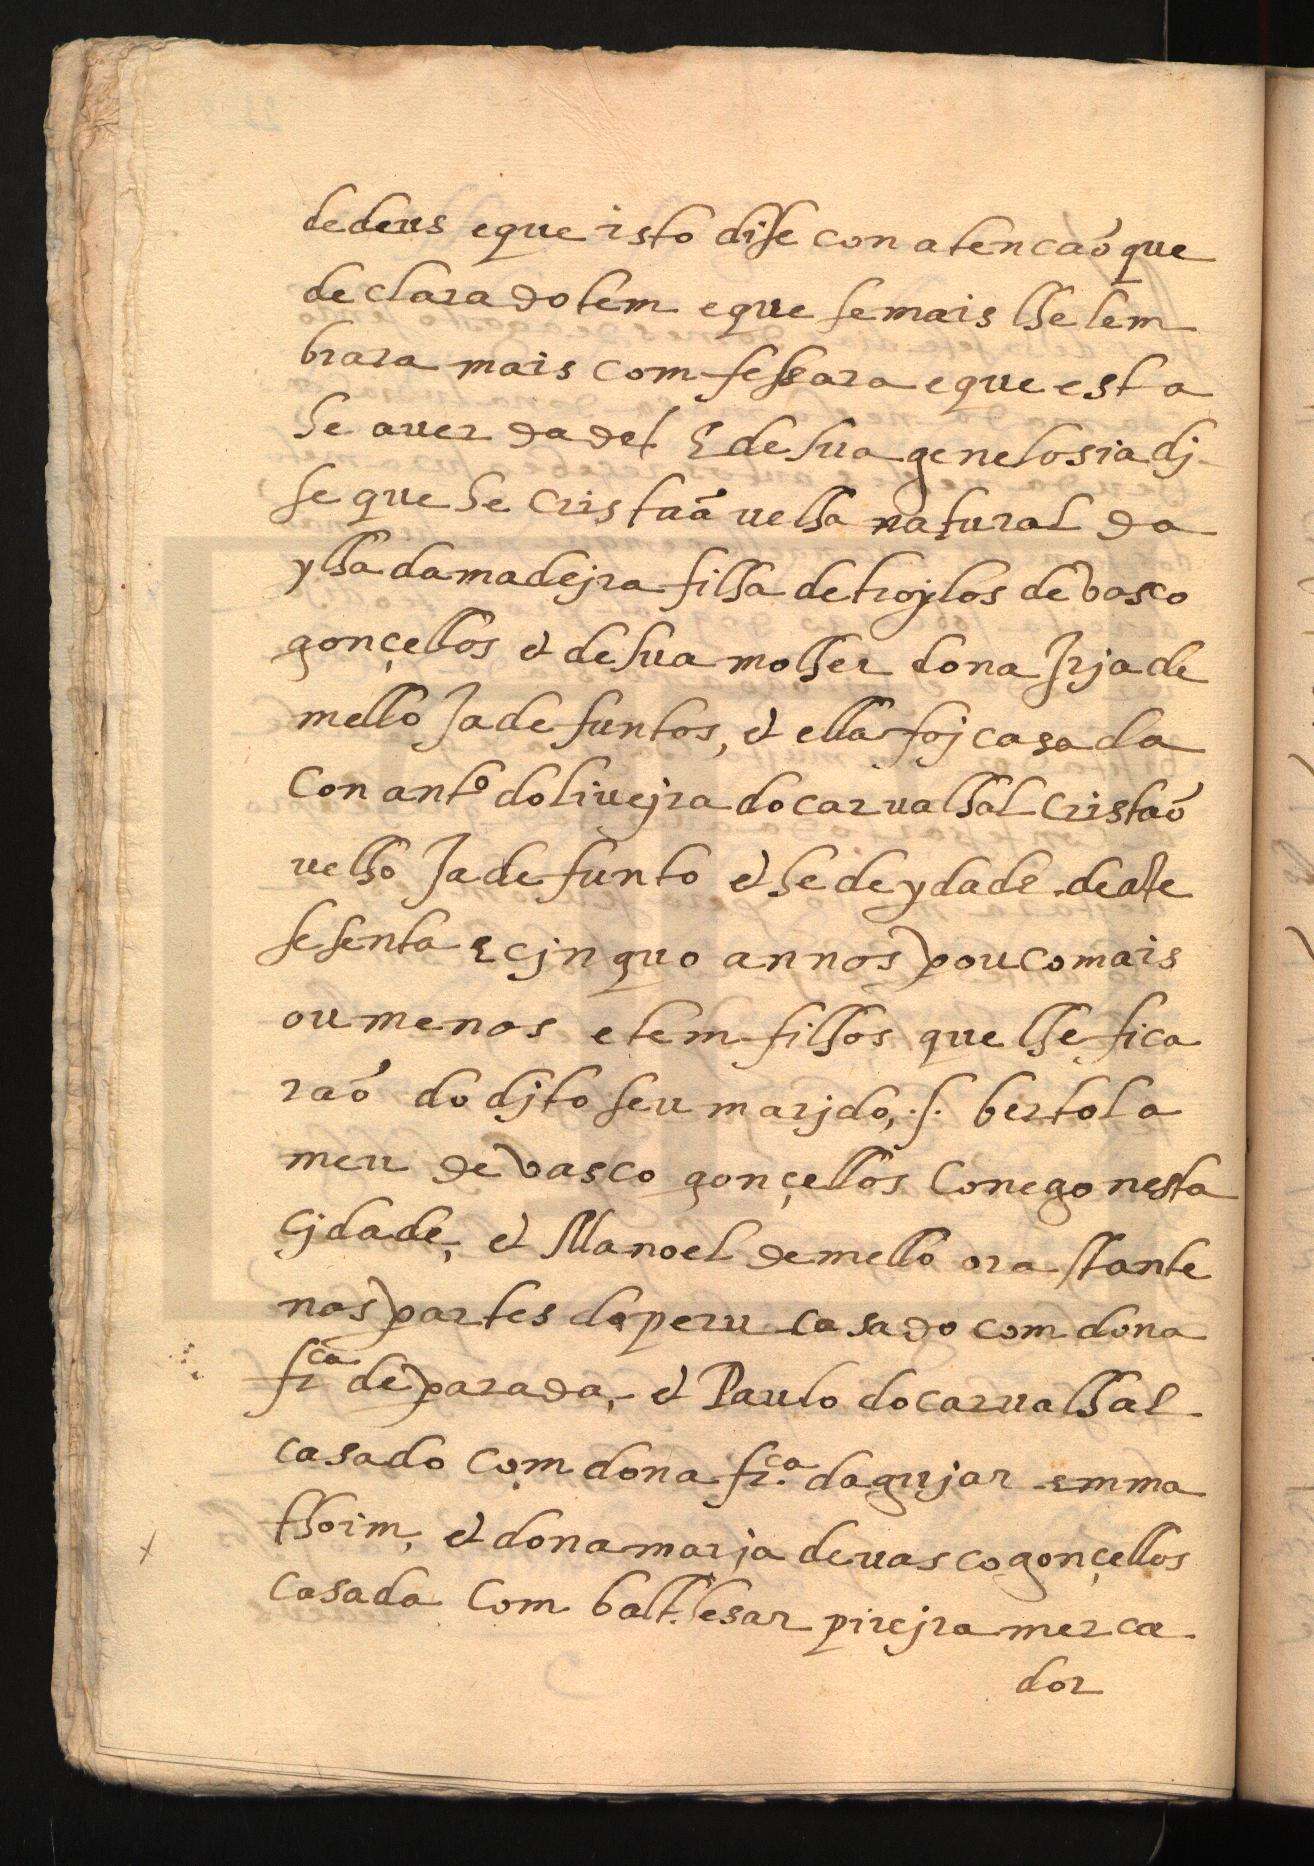 de deus e que isto disse con a tencaõ que
declarado tem e que se mais lhe lem
brara mais comfessara e que esta
he a uerdade E de sua genelosia dj
se que he cristaã uelha natural da
ylha da madejra filha de troylos de vasco
gonçellos & de sua molher dona Irja de
mello Ja defuntos, & ella foj casada
con antº dolivejra do carualhal cristaõ
uelho Ja defunto & he de ydade de ate
sesenta E cjnquo annos pouco mais
ou menos e tem filhos que lhe fica
raõ do djto seu marjdo, .s. bertola
meu de vasco gonçellos conego nesta
cjdade, & Manoel de mello ora stante
nas partes do peru casado com dona
frca de parada, & Paulo do carualhal
casado com dona frca dagujar em ma
thoim, & dona marja de uasco gonçellos
casada com balthesar pirejra merca
dor